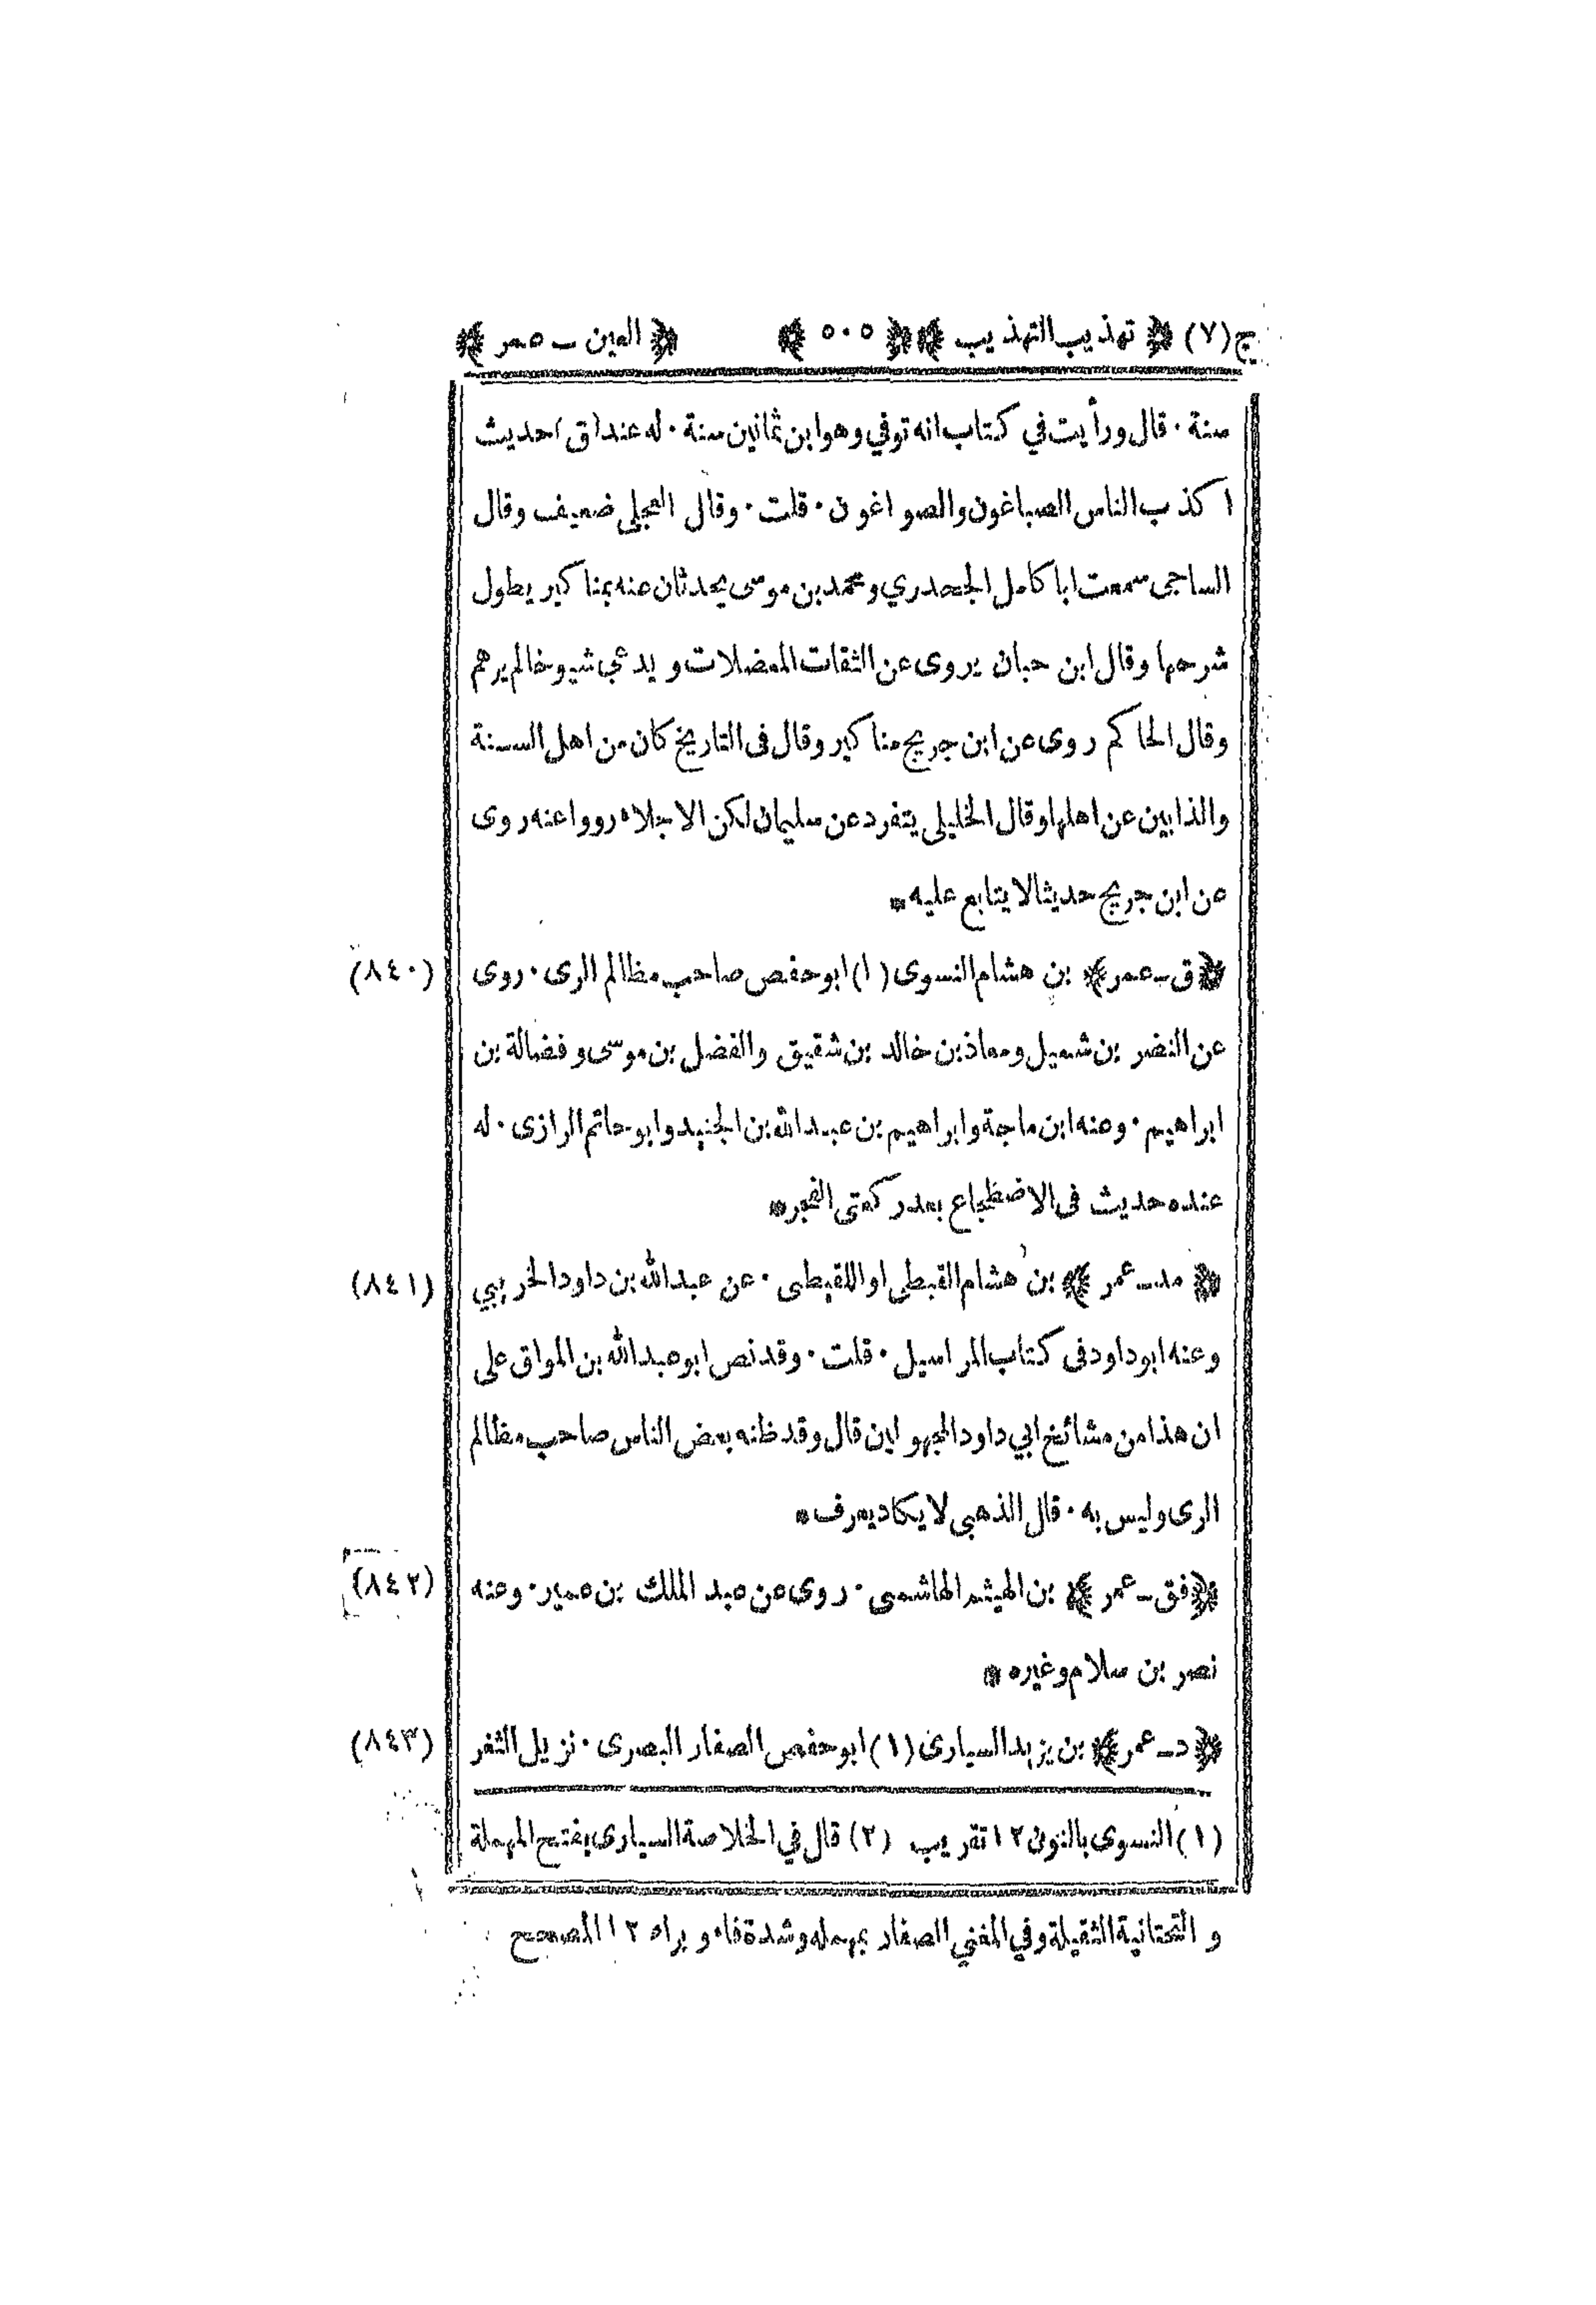 ج(٧) ﴿ تهذيب التهذيب ﴾ ﴿ ٥٠٥ ﴾ ﴿ العين – عمر ﴾
سنة · قال ورأيت في كتاب انه توفي وهو ابن ثمانين سنة · له عند (ق) حديث
اكذب الناس الصباغون والصواغون · قلت · وقال العجلى ضعيف وقال
الساجى سمعت ابا كامل الجحدري ومحمد بن موسى يحدثان عنه بمناكير يطول
شرحها وقال ابن حبان يروى عن الثقات المعضلات ويدعي شيوخا لم يرهم
وقال الحاكم روى عن ابن جريج مناكير وقال فى التاريخ كان من اهل السنة
والذابين عن اهلها وقال الخليلى يتفرد عن سليمان لكن الاجلاء رووا عنه روى
عن ابن جريج حديثا لا يتابع عليه *
﴿ ق – عمر ﴾ بن هشام النسوى (١) ابو حفص صاحب مظالم الرى · روى (٨٤٠)
عن النضر بن شميل ومعاذ بن خالد بن شقيق والفضل بن موسى وفضالة بن
ابراهيم · وعنه ابن ماجة وابراهيم بن عبد الله بن الجنيد وابو حاتم الرازى · له
عنده حديث فى الاضطجاع بعد ركعتى الفجر *
﴿ مد – عمر ﴾ بن هشام القبطى او اللقيطى · عن عبد الله بن داود الخريبي (٨٤١)
وعنه ابو داود فى كتاب المراسيل · قلت · وقد نص ابو عبد الله بن المواق على
ان هذا من مشائخ ابي داود المجهولين قال وقد ظنه بعض الناس صاحب مظالم
الرى وليس به · قال الذهبى لا يكاد يعرف *
﴿ فق – عمر ﴾ بن الهيثم الهاشمى · روى عن عبد الملك بن عمير · وعنه (٨٤٢)
نصر بن سلام وغيره *
﴿ د – عمر ﴾ بن يزيد السيارى (١) ابو حفص الصفار البصرى · نزيل الثغر (٨٤٣)
(١) النسوى بالنون ١٢ تقريب (٢) قال في الخلاصة السيارى بفتح المهملة
و التحتانية الثقيلة وفي المغني الصفار بمهمله وشدة فاء و براء ١٢ المصحح